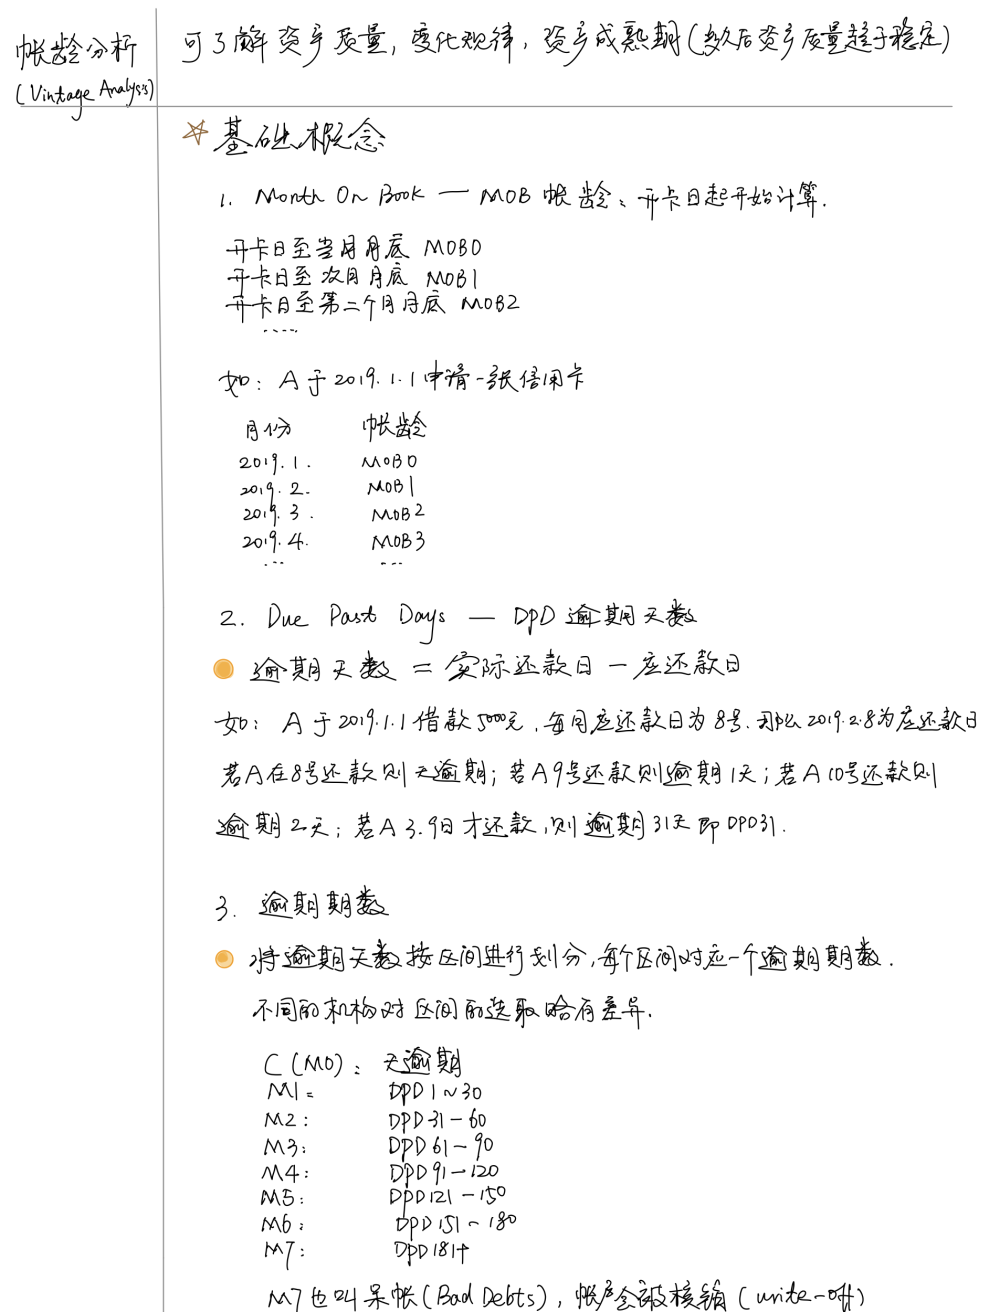 帐龄分析
(Vintage Analysis)
可了解资产质量，变化规律，资产成熟期(多久后资产质量趋于稳定)
基础概念
1. Month On Book — MOB 帐龄：开卡日起开始计算.
开卡日至当月月底 MOB0
开卡日至次月月底 MOB1
开卡日至第二个月月底 MOB2
....
如：A于2019.1.1申请一张信用卡
月份 帐龄
2019.1. MOB0
2019.2. MOB1
2019.3. MOB2
2019.4. MOB3
... ...
2. Due Past Days — DPD 逾期天数
逾期天数 = 实际还款日 — 应还款日
如：A于2019.1.1借款5000元，每月应还款日为8号.那么2019.2.8为应还款日
若A在8号还款则无逾期；若A9号还款则逾期1天；若A10号还款则
逾期2天；若A3.9日才还款，则逾期31天即DPD31.
3. 逾期期数
将逾期天数按区间进行划分，每个区间对应一个逾期期数.
不同的机构对区间的选取略有差异.
C(M0)： 无逾期
M1: DPD1~30
M2: DPD31-60
M3: DPD61-90
M4: DPD91-120
M5: DPD121-150
M6: DPD151-180
M7: DPD181+
M7也叫呆帐(Bad Debts)，帐户会被核销(write-off)